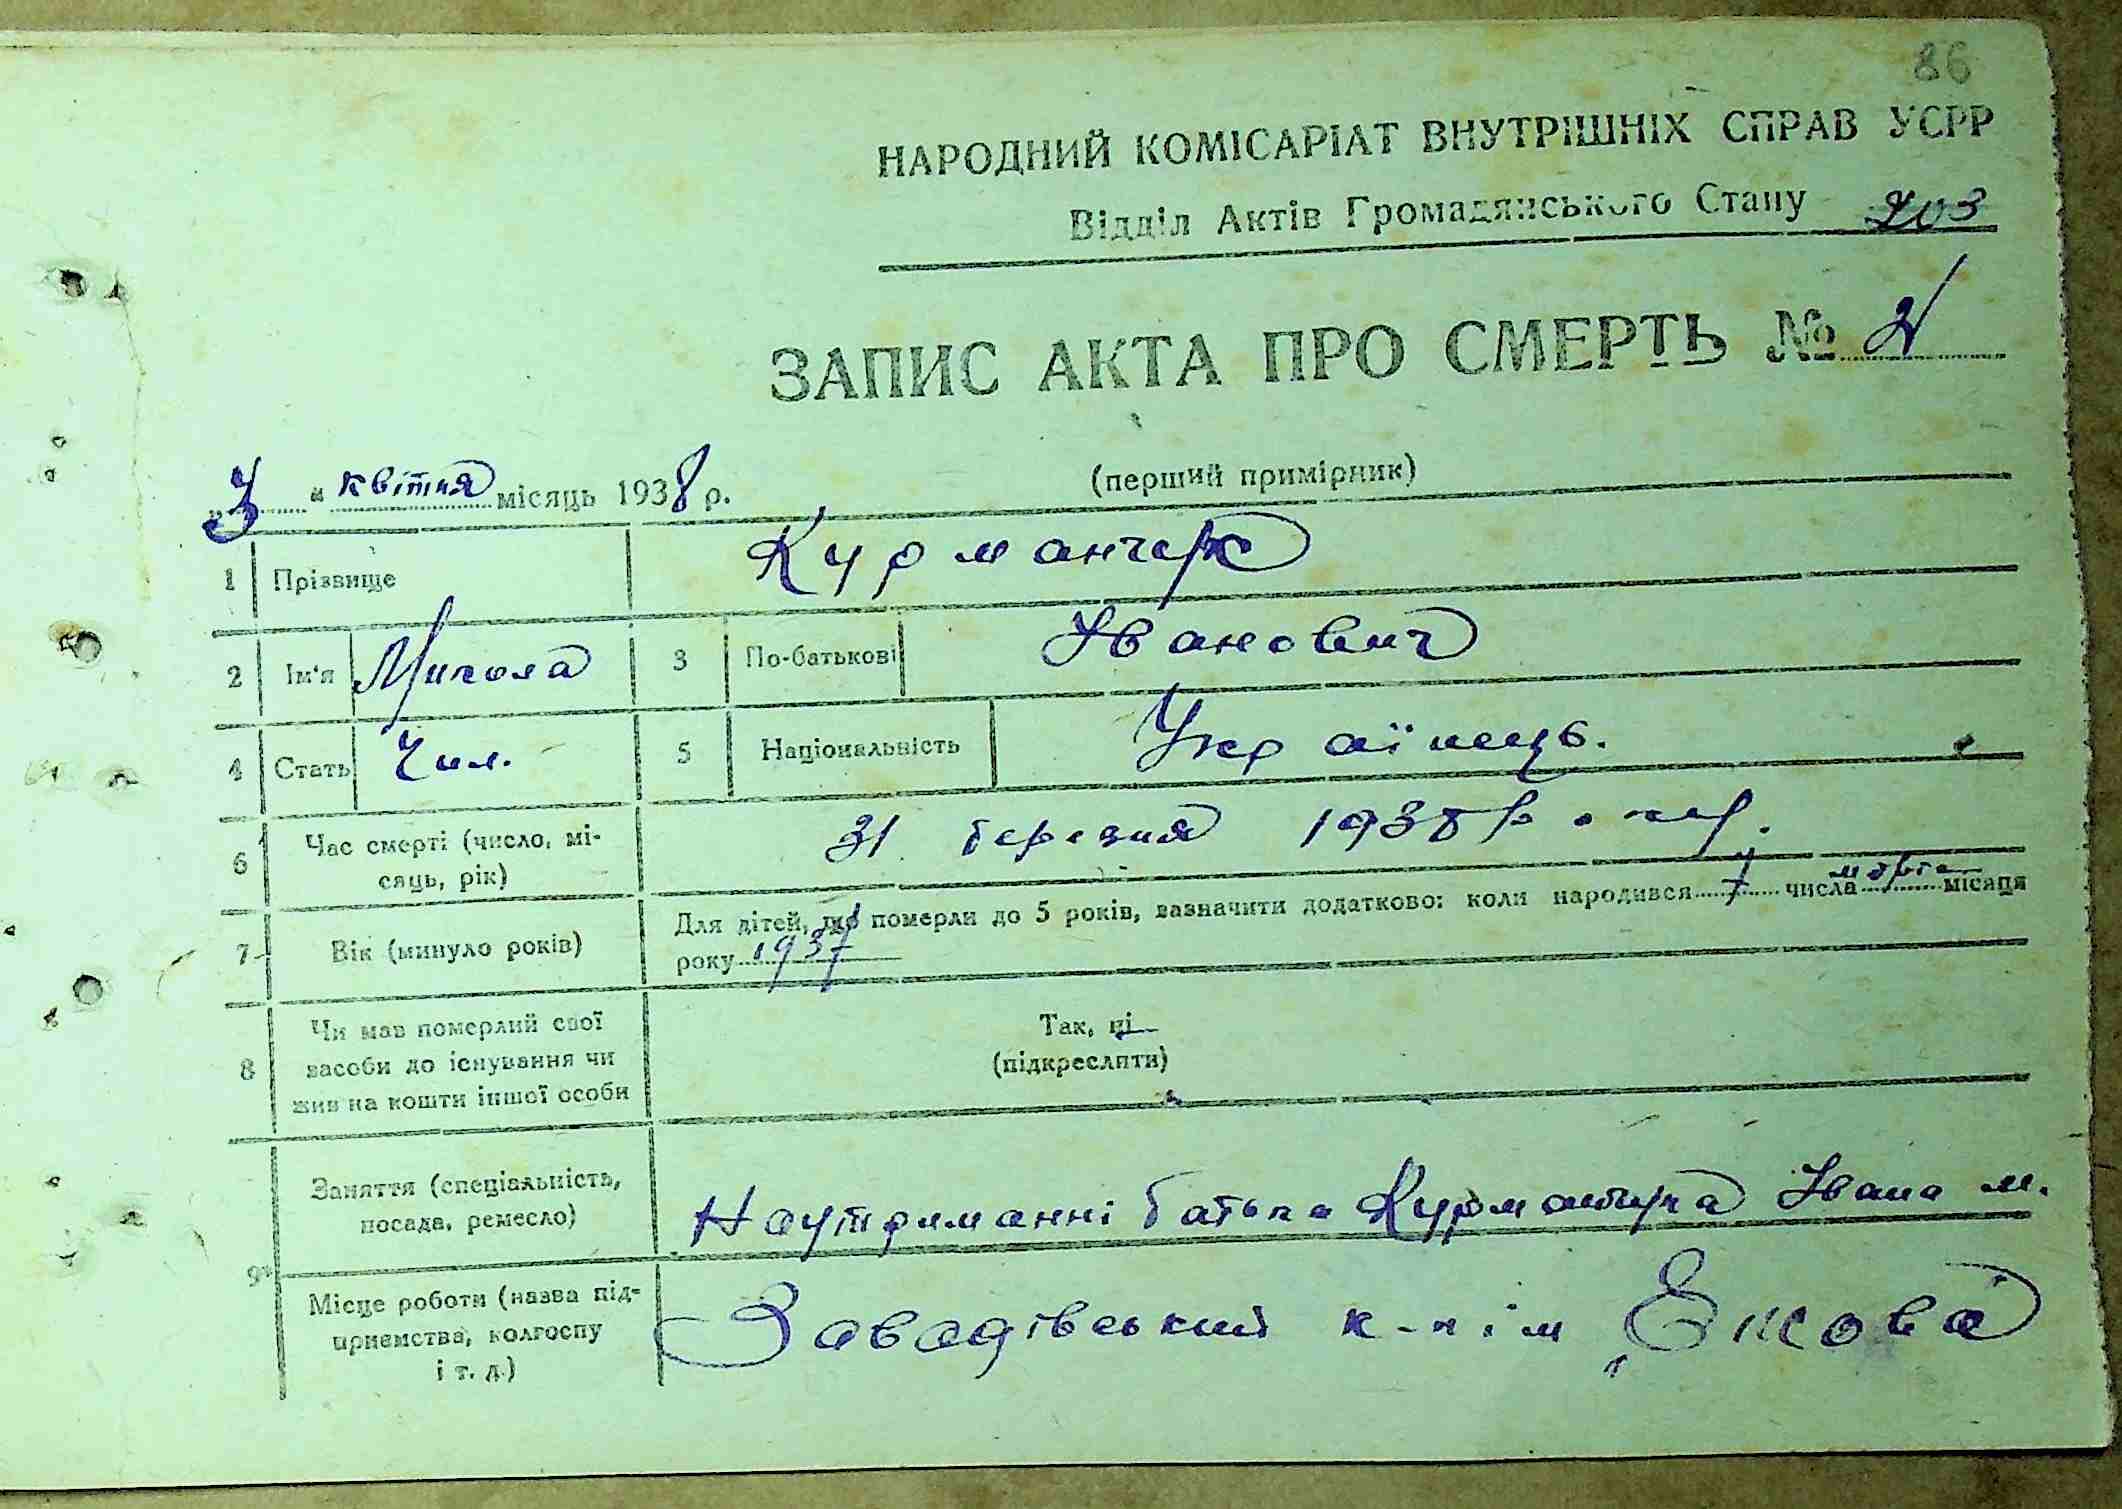 86
НАРОДНИЙ КОМІСАРІАТ ВНУТРІШНІХ СПРАВ УСРР
Відділ Актів Громадянського Стану 203
ЗАПИС АКТА ПРО СМЕРТЬ №
(перший примірник)
„3" квітня місяць 1938 р.
1 Прізвище
2 Ім'я Микола 3 По-батькові Іванович
4 Стать Чол. 5 Національність Українець.
6 Час смерті (число, мі-
сяць, рік) 31 березня 1938 р.
7 Вік (минуло років) Для дітей, що померли до 5 років, зазначити додатково: коли народився 7 числа марта місяця
року 1937
8 Чи мав померлий свої
засоби до існування чи
жив на кошти іншої особи
Так, ні
(підкреслити)
9 Заняття (спеціальність,
посада, ремесло) На утриманні батька Івана М.
Місце роботи (назва під-
приємства, колгоспу
і т. д.) Завадівський к-п ім